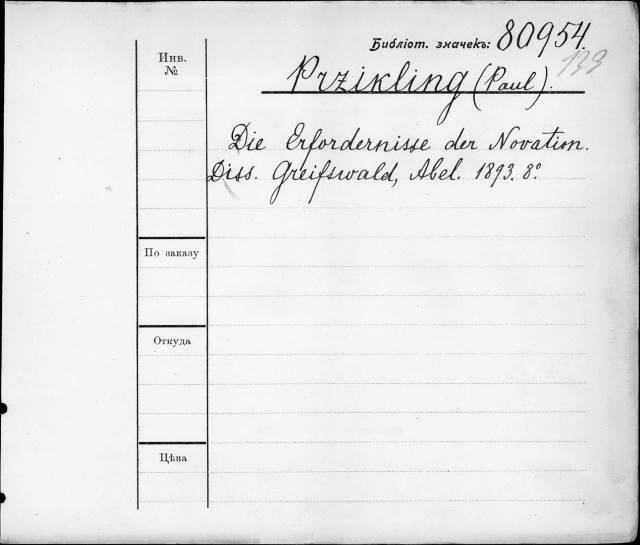 Библіот. значекъ: 80954.
139
Инв.
№
Przikling (Paul).
Die Erfordernisse der Novation.
Diss. Greifswald, Abel. 1893. 8°.
По заказу
Откуда
Цѣна